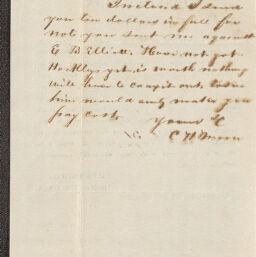 Inclosed I send
you ten dollars in full for
note you sent me against
E B Elliott. Have not got
Hockleys yet is worth nothing
will have to out
him would only make you
pay cost.
Yours &c
C H Moore